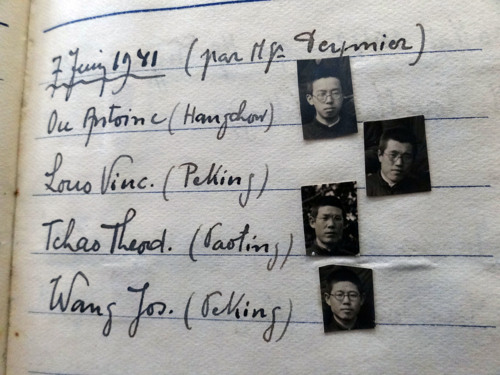 7 Juin 1941 (par Mgr Deymier)
Ou Antoine (Hangchow)
Lous Vinc. (Peking)
Tchao Theod. (Paoting)
Wang Jos. (Peking)